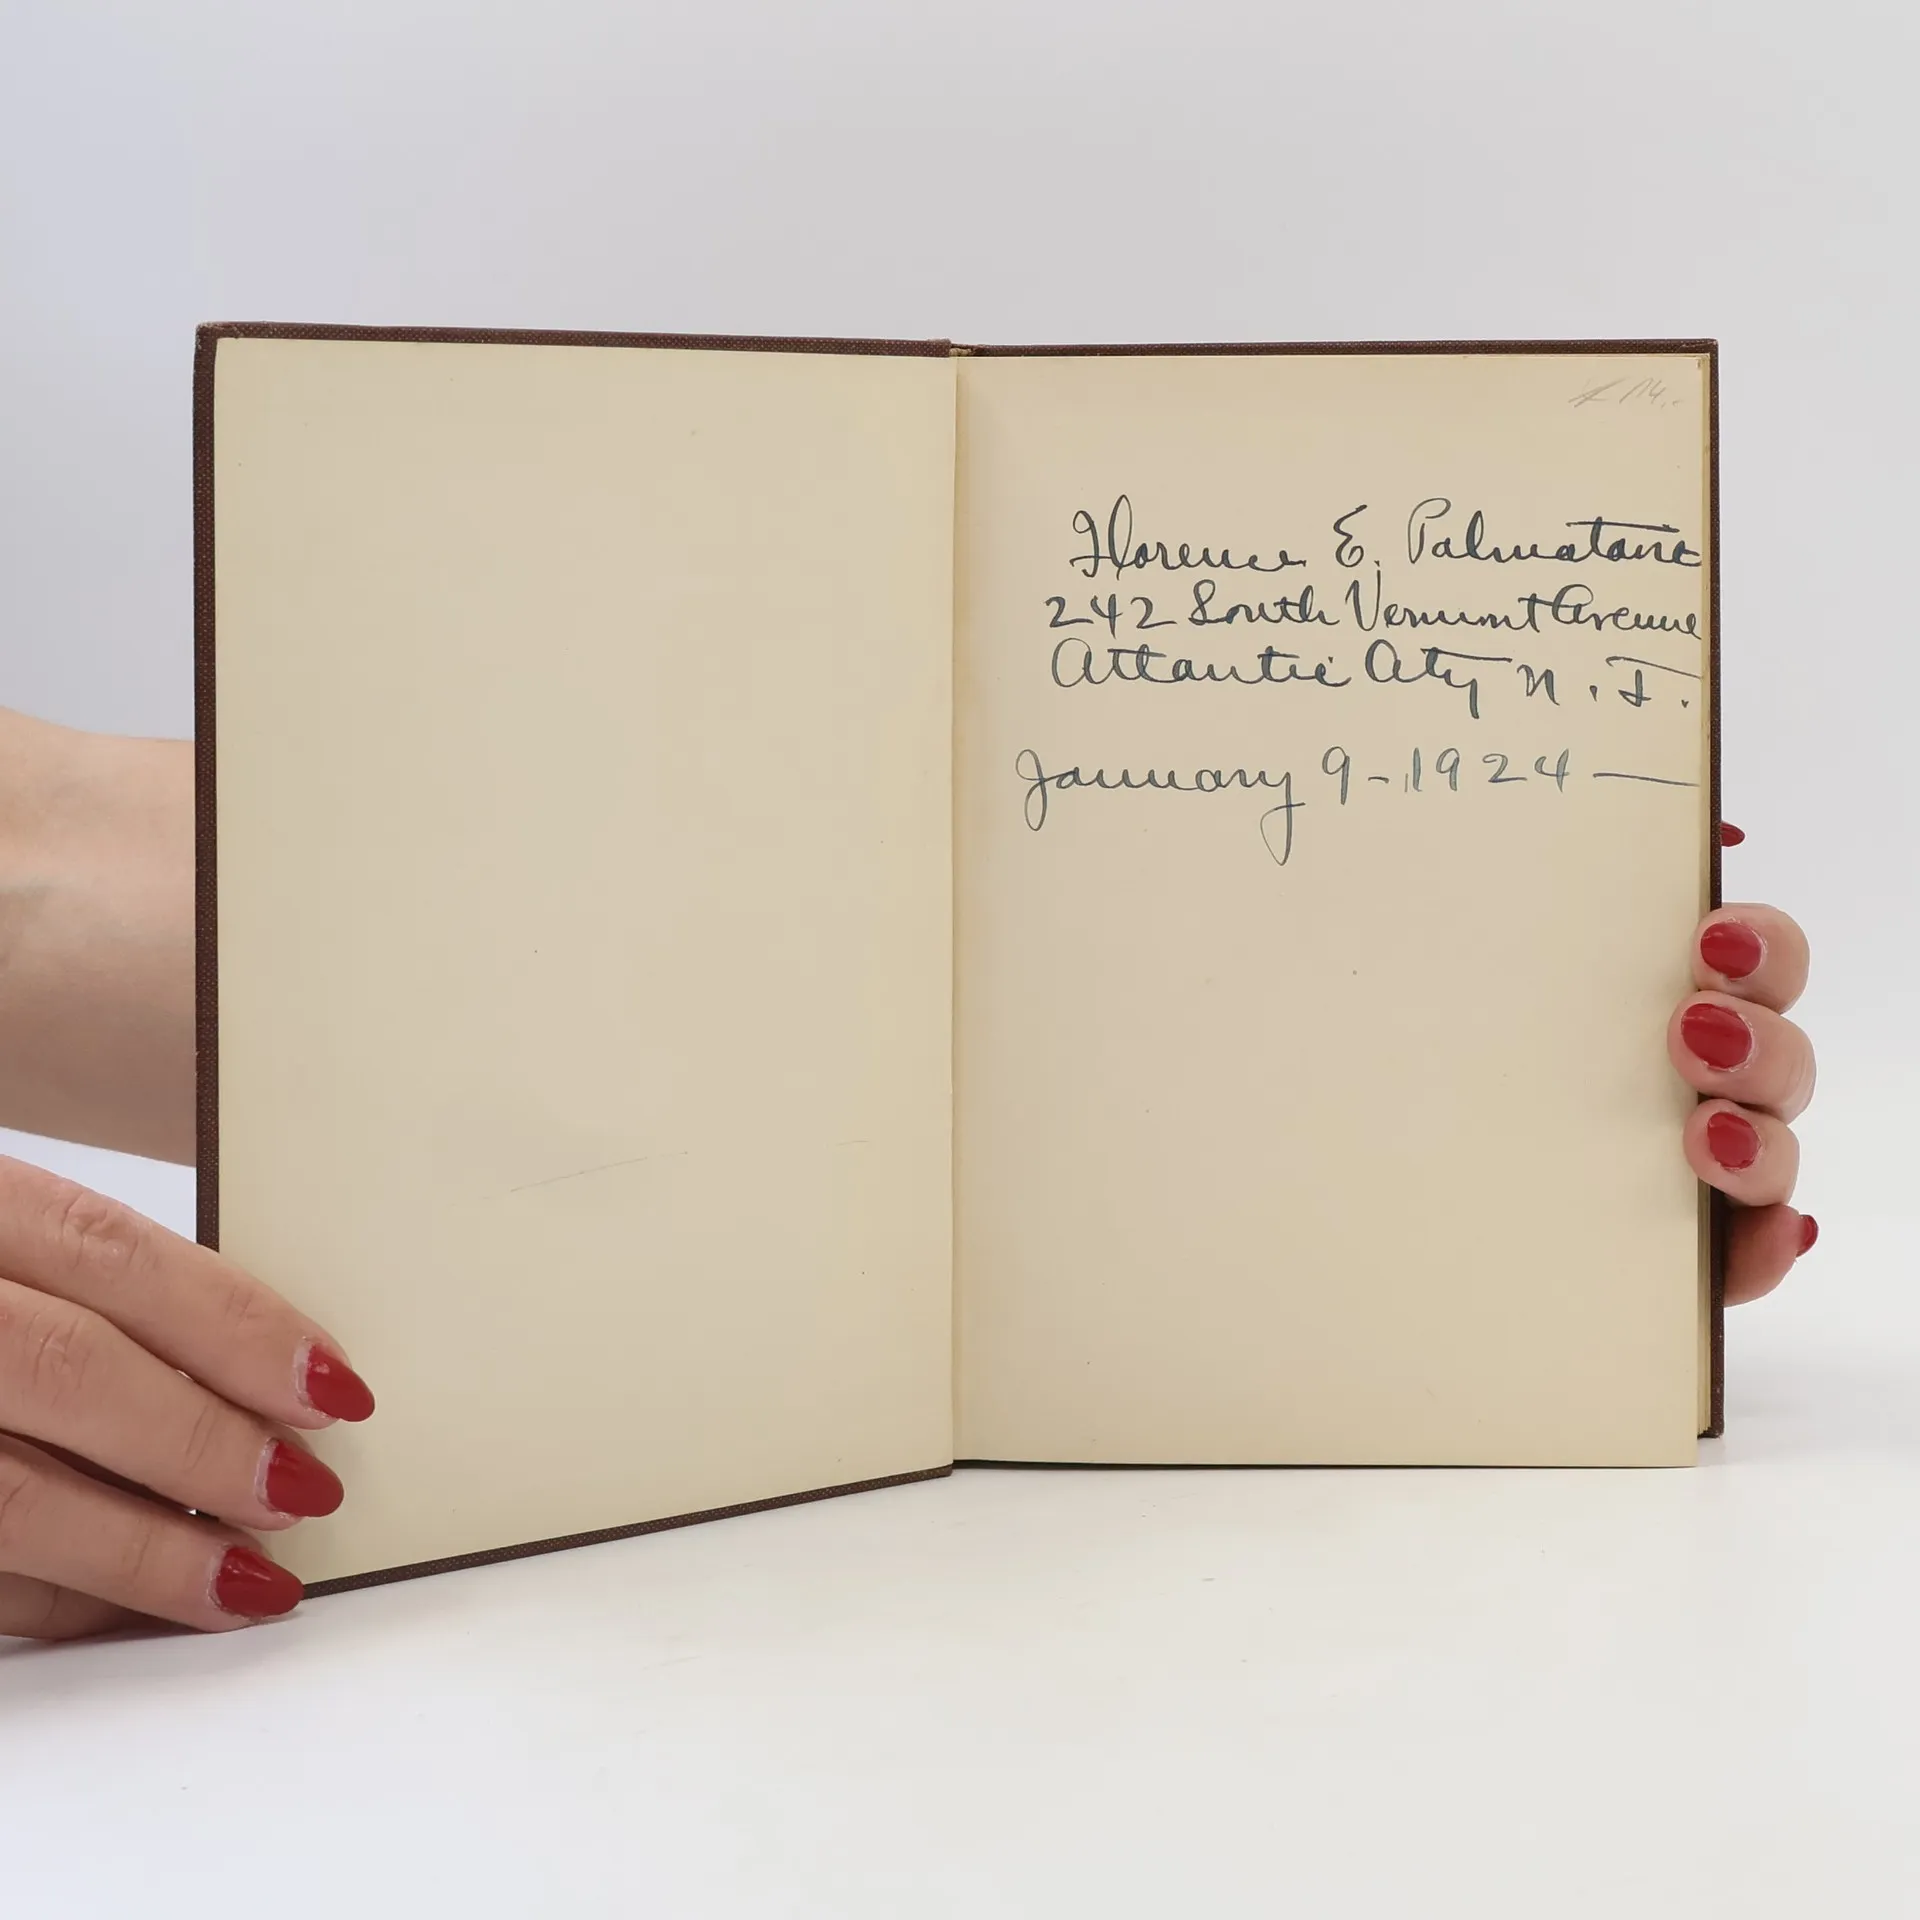 Florence E. Palmataire
242 South Vermont Avenue
Atlantic City N. J.
January 9-1924 —